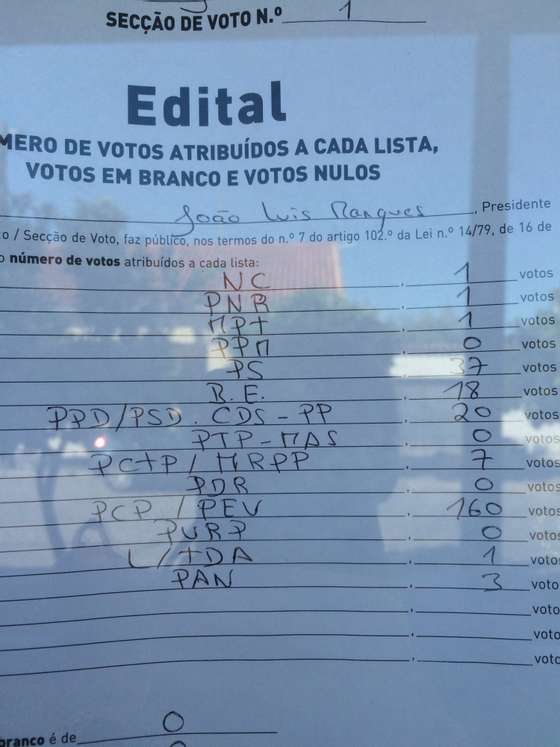 SECÇÃO DE VOTO N.º 1
Edital
MERO DE VOTOS ATRIBUÍDOS A CADA LISTA,
VOTOS EM BRANCO E VOTOS NULOS
João Luis Marques, Presidente
o / Secção de Voto, faz público, nos termos do n.º 7 do artigo 102.º da Lei n.º 14/79, de 16 de
o número de votos atribuídos a cada lista:
NC 1 votos
PNR 1 votos
MPT 1 votos
PPM 0 votos
PS 37 votos
B.E. 18 votos
PPD/PSD. CDS-PP 20 votos
PTP-MAS 0 votos
PCTP/MRPP 7 votos
PDR 0 votos
PCP/PEV 160 votos
PURP 0 votos
L/TDA 1 votos
PAN 3 votos
voto
voto
voto
branco é de 0